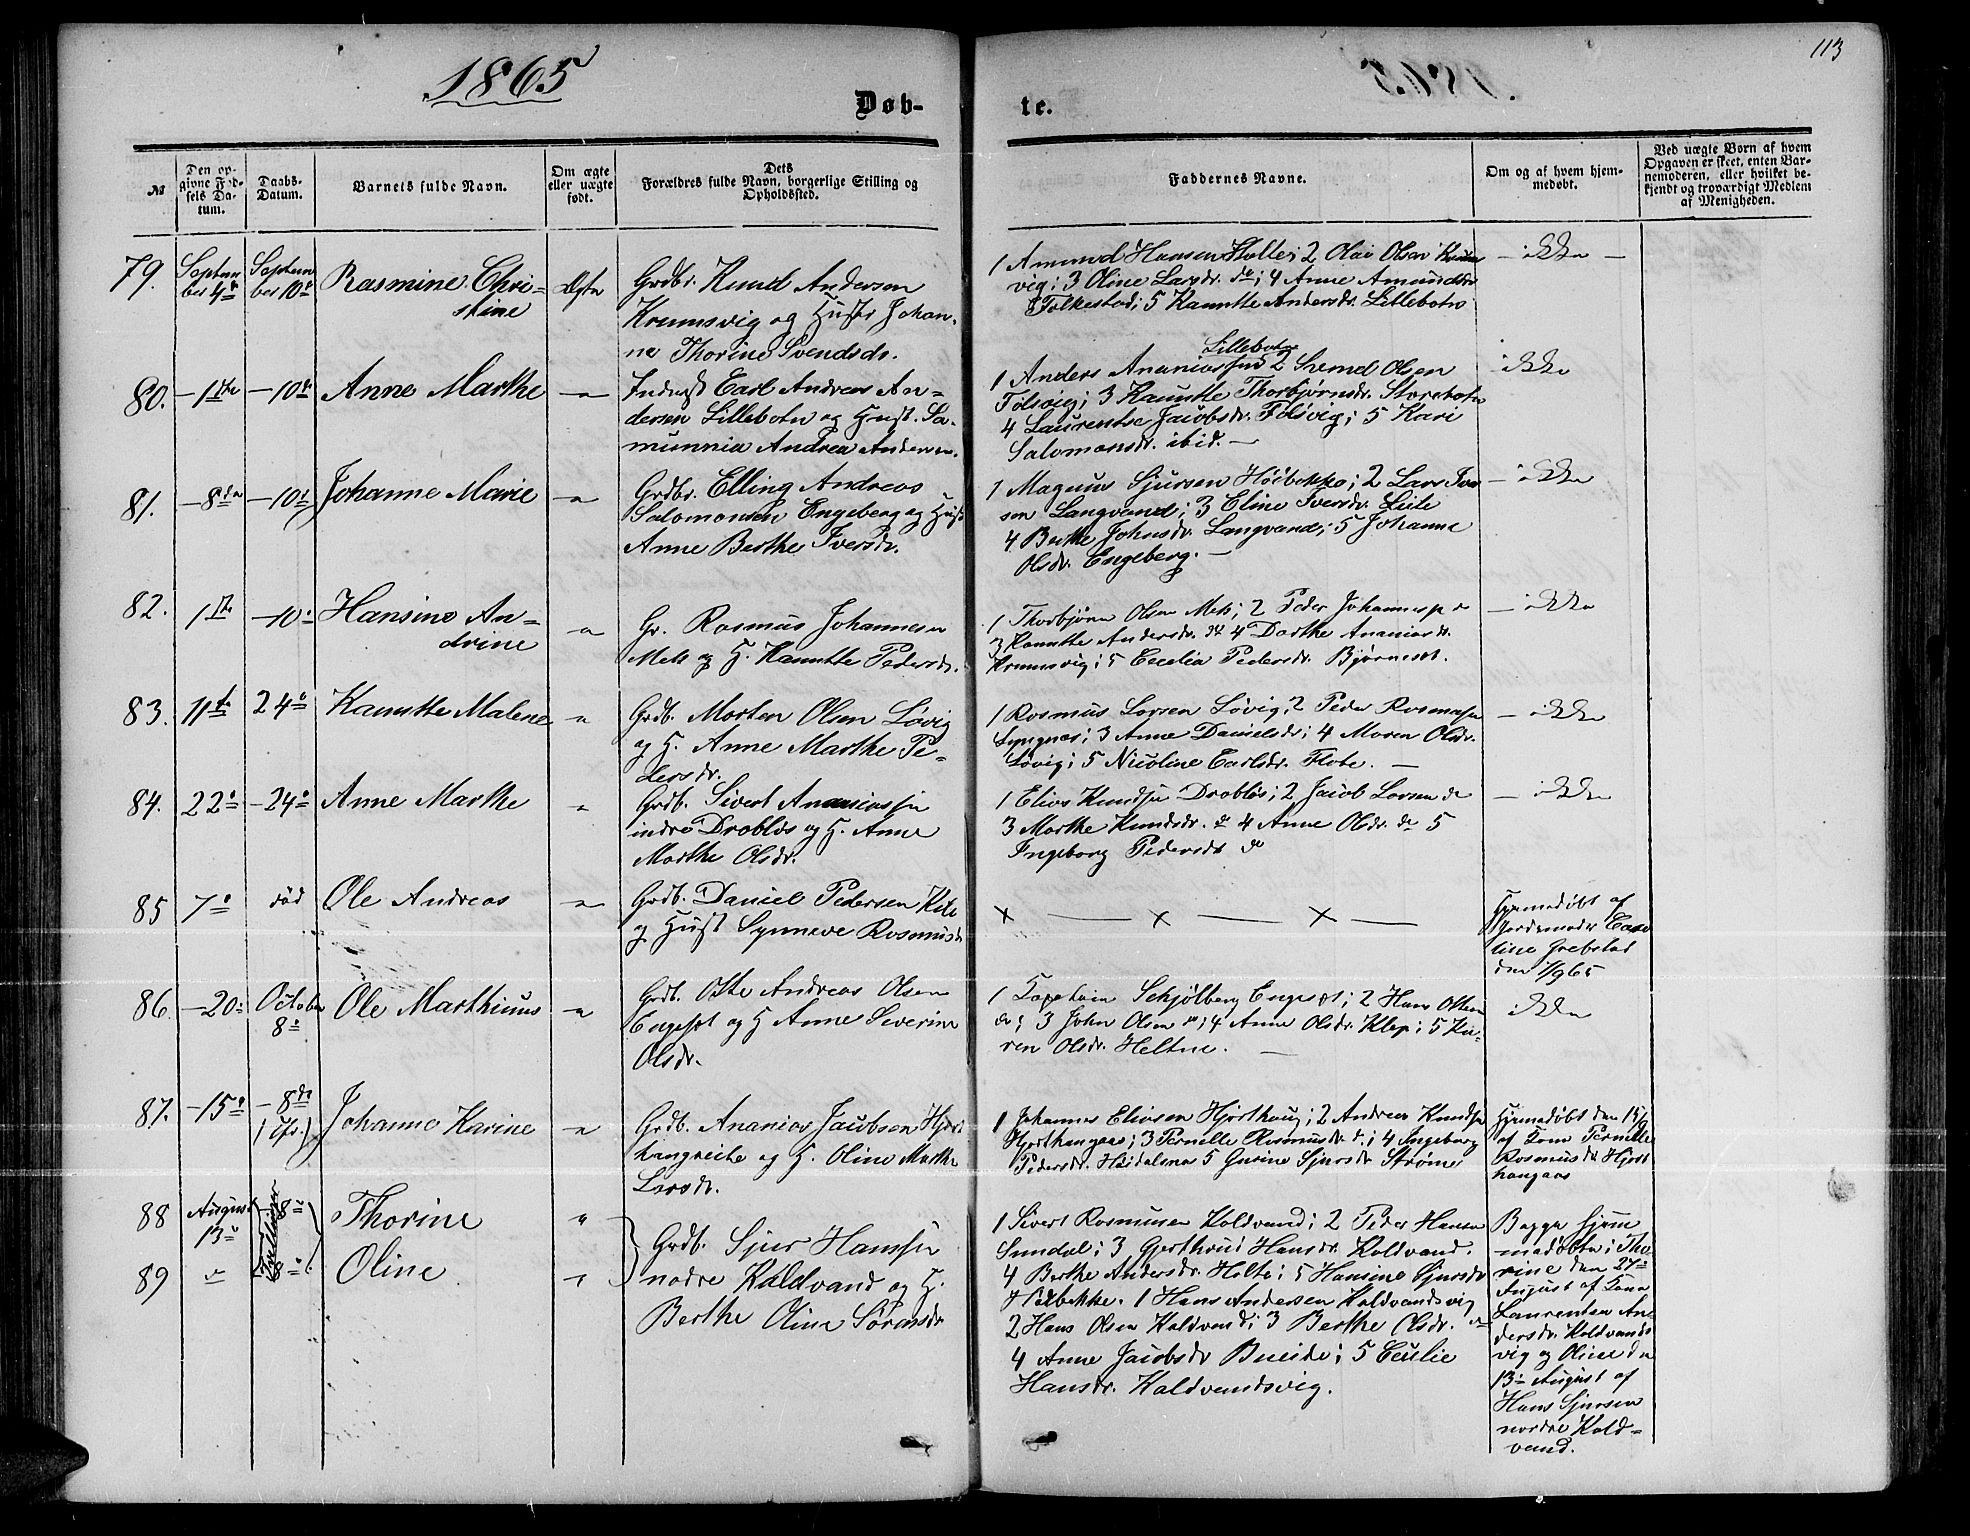 113
1865
Døb-
te.
№
Den op-
givne Fød-
sels Da-
tum.
Daabs-
Datum.
Barnets fulde Navn.
Om ægte
eller uægte
født.
Dets
Forældres fulde Navn, borgerlige Stilling og
Opholdssted.
Faddernes Navne.
Om og af hvem hjem-
medøbt.
Ved uægte Børn af hvem
Opgaven er skeet, enten Bar-
nemoderen, eller hvilket be-
kjendt og troværdigt Medlem
af Menigheden.
79. Septem-
ber 4de
Septem
ber 10de
Rasmine Chri-
stine
Ægte
Grdbr. Knud Andersen
Krumsvig og Hustr Johan-
ne Thorine Svendsdr.
1 Amund Hansen 2 Olai Olsen Krums
vig; 3 Oline Larsdr. do; 4 Anne Amundsdr
Folkestad; 5 Kanutte Andersdr. Lillebotn
- ikke -
80. - 1ste - 10de Anne Marthe - " -
Inderst Carl Andreas An-
dersen Lillebotn og Hust. Sa-
munnia Andrea Andersen.
Lillebotn
1 Anders Ananiassen 2 Svend Olsen
Følsvig; 3 Kanutte Thorbjørnsdr. Storebotn
4 Laurentse Jacobsdr. Følsvig; 5 Kari
Salomonsdr. ibid. -
- ikke
81. - 8de - 10de Johanne Marie - " -
Grdbr. Elling Andreas
Salomonsen Engeberg og Hust
Anne Berthe Iversdr.
1 Magnus Sjursen Høibakke; 2 Lars Iver
sen Langvand; 3 Eline Iversdr. Leite
4 Berthe Johnsdr. Langvand; 5 Johanne
Olsdr. Engeberg. -
- ikke
82. 1ste - 10de Hansine An-
drine
- " -
Gr. Rasmus Johannesen
Mek og H. Kanutte Pedersdr.
1 Thorbjørn Olsen Mek; 2 Peder Johannesen
3 Kanutte Andersdr. do 4 Dorthe Ananiasdr.
Krumsvig; 5 Cecelia Pedersdr. Bjørneset.
- ikke
83. 11te 24de Kanutte Malene - " -
Grdb. Morten Olsen Løvig
og H. Anne Marthe Pe-
dersdr.
1 Rasmus Larsen Løvig; 2 Peder Rasmusen
Lyngnes; 3 Anne Danielsdr; 4 Maren Olsdr.
Løvig; 5 Nicoline Carlsdr. Flote. -
- ikke
84. 22de - 24de Anne Marthe "
Grdb. Sivert Ananiassen
indre Drabløs og H. Anne
Marthe Olsdr.
1 Elias Knudsen Drabløs; 2 Jacob Larsen do
3 Marthe Knudsdr. do 4 Anne Olsdr. do 5
Ingeborg Pedersdr do
- ikke
85 7de død Ole Andreas - " -
Grdb. Daniel Pedersen Kile
og Hust Synneve Rasmusdr
x - x - x -
Hjemmedøbt af
Jordemoder Caro
line Grebstad
den 7/9 65
86. - 20de October
8de
Ole Marthinus - " -
Grdb. Otte Andreas Olsen
Engeset og H Anne Severine
Olsdr.
1 Schjølberg Engeset; 2 Hans Olsen
do; 3 John Olsen do; 4 Anne Olsdr. Klep; 5 Ka-
ren Olsdr. Heltne. -
ikke
87. - 15de - 8de Johanne Karine - " -
Grdb. Ananias Jacobsen Hjort
haugreite og H. Oline Marthe
Larsdr.
1 Johannes Eliasen Hjorthaug; 2 Andreas Knudsen
Hjorthaugaas; 3 Pernelle Rasmusdr. do; 4 Ingeborg
Pedersdr. Heidalsnes 5 Gurine Sjursdr Strøme
Hjemmedøbt den 15/9
af Kone Pernelle
Rasmusdr Hjort
haugaas
88 August
13de
8de
Tvillinger
Thorine "
89 " 8de Oline - " -
Grdb. Sjur Hansen
nodre Kaldvand og H.
Berthe Oline Sørensdr
1 Sivert Rasmusen Kaldvand; 2 Peder Hansen
Sundal; 3 Gjerthrud Hansdr. Kaldvand.
4 Berthe Andersdr. Holte; 5 Hansine Sjursdr
1 Hans Andersen Kaldvandsvig
2 Hans Olsen Kaldvand; 3 Berthe Olsdr. do
4 Anne Jacobsdr Bueide; 5 Cecilie
Hansdr. Kaldvandsvig.
Begge hjem-
medøbte; Tho-
rine den 27de
August af Kone
Laurentse An-
dersdr. Kaldvands
vig og Oline den
13de August af
Hans Sjursen
nordre Kald-
vand.